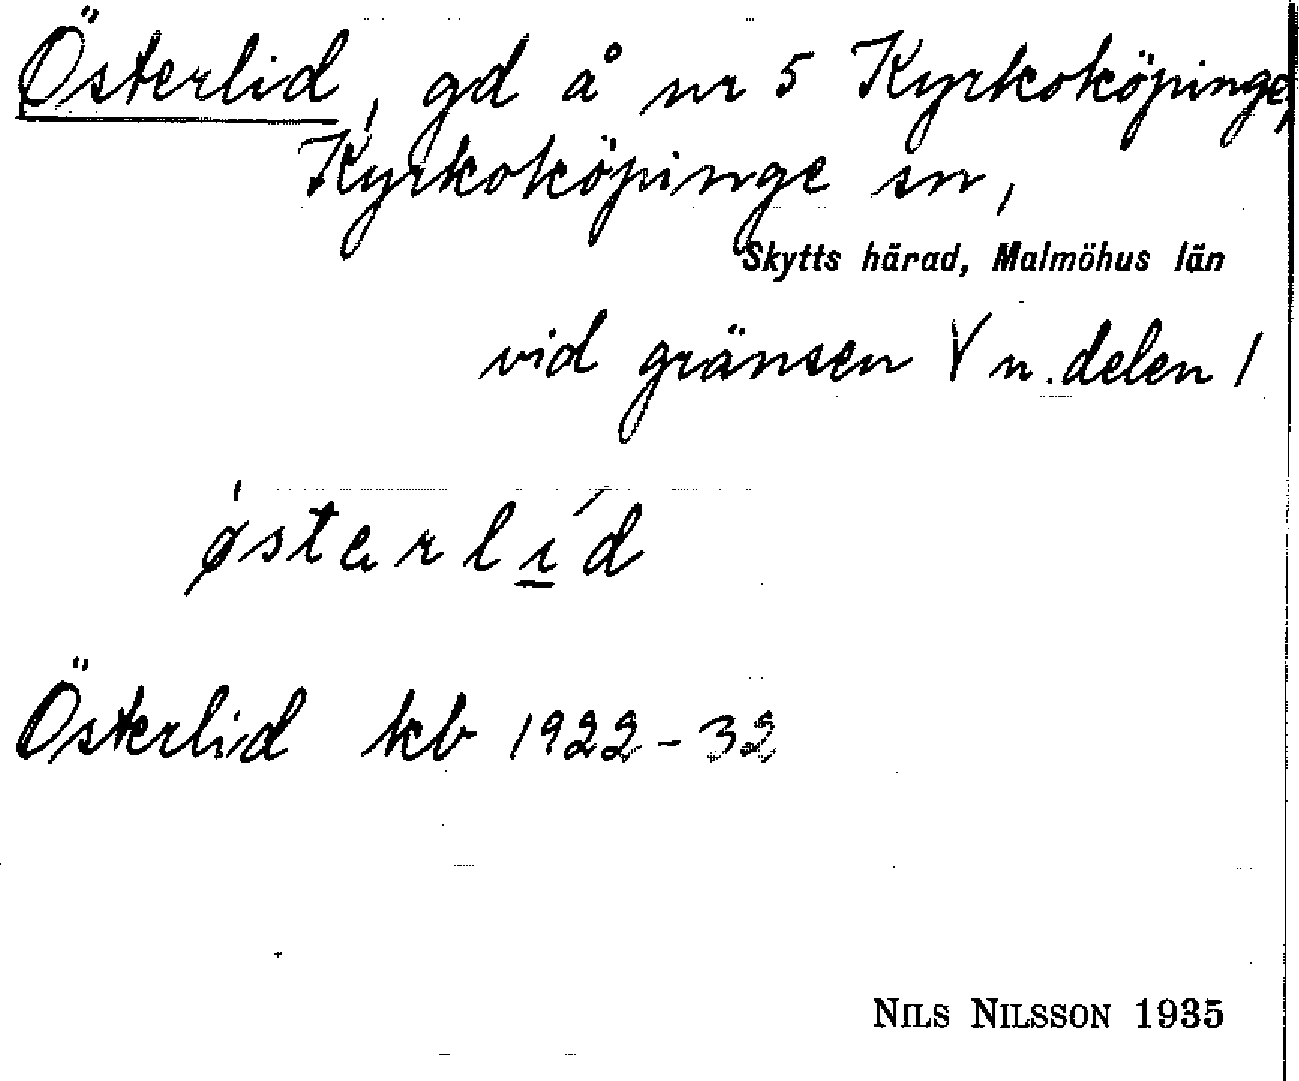 Österlid, gd å nr 5 Kyrkoköpinge,
Kyrkoköpinge sn,
Skytts härad, Malmöhus län
vid gränsen V n. delen /
østərlı̲́d
Österlid kb 1922-32
NILS NILSSON 1935